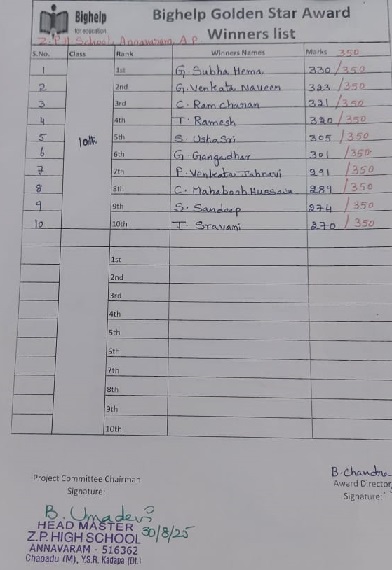 Bighelp
for education.
Bighelp Golden Star Award
Winners list
Z.P.H School, Annavaram, A.P
S.No. Class Rank Winners Names Marks 350
1 1st G. Subha Hema 330/350
2 2nd G. Venkata Naveen 323/350
3 3rd C. Ram charan 321/350
4 4th T. Ramesh 320/350
10th
5 5th S. Usha Sri 305/350
6 6th G. Gangadhar 301/350
7 7th P. Venkata Jahnavi 291/350
8 8th C. Mahaboob 287/350
9 9th S. Sandeep 274/350
10 10th T. Sravani 270/350
1st
2nd
3rd
4th
5th
6th
7th
8th
9th
10th
Project Committee Chairman
Signature:
B. Chandra
Award Director
Signature:
B. Umadevi
30/8/25
HEAD MASTER
Z.P. HIGH SCHOOL
ANNAVARAM - 516362
Chapadu (M), Y.S.R. Kadapa (Dt.)